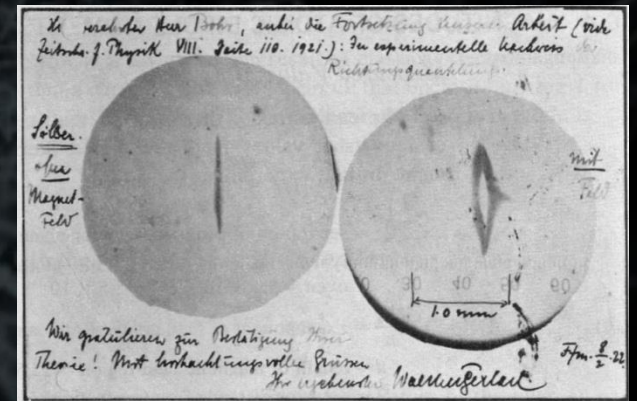 verehrter Herr Bohr, anbei die Fortsetzung unserer Arbeit (vide
Zeitschr. f. Physik VIII. Seite 110. 1921.): Der experimentelle Nachweis der
Richtungsquantelung.
Silber.
ohne
Magnet-
Feld
mit
Feld
30 40 50 60
1.0 mm
Wir gratulieren zur Bestätigung Ihrer
Theorie! Mit hochachtungsvollen Grüssen
Ihr ergebenster Walther Gerlach.
Ffm. 8/2. 22.